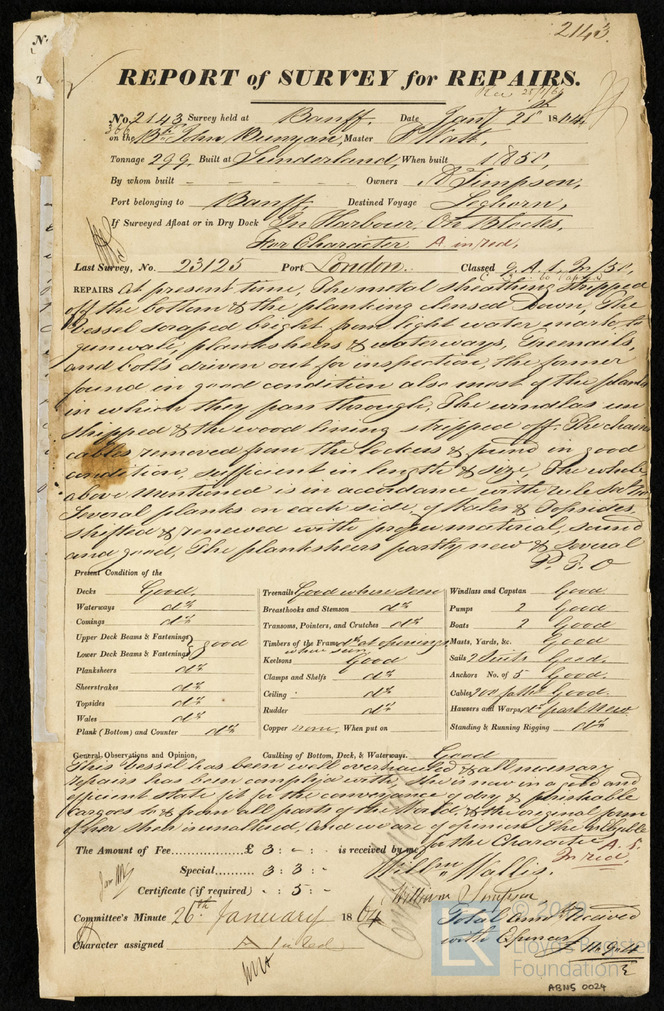 2143
REPORT of SURVEY for REPAIRS.
No. 2143 Survey held at Banff, Date Jany 21st 1864
on the Bk John Bunyan, Master P Watt,
Tonnage 299 Built at Sunderland, When built 1850,
By whom built - - - - Owners Simpson,
Port belonging to Banff Destined Voyage Leghorn,
If Surveyed Afloat or in Dry Dock In Harbour, On Blocks,
For Character A in red,
Last Survey, No. 23125 Port London. Classed
REPAIRS At present time, The metal sheathing stripped
off the bottom & the planking clensed down, The
Vessel scraped bright from light water mark to
gunwale, planksheers & waterways, Treenails,
and bolts driven out for inspection, the former
found in good condition also most of the planks
in which they pass through, The windlas un
shipped & the wood lining stripped off. The chain
cables removed from the lockers & found in good
condition, sufficient in length & size, The whole
above mentioned is in accordance with rule
Several planks on each side of Wales & Topsides,
shifted & renewed with proper material, sound
and good, The planksheers partly new & several
P. T. O
Present Condition of the
Decks Good,
Waterways do
Comings do
Upper Deck Beams & Fastenings
Lower Deck Beams & Fastenings } good
Planksheers do
Sheerstrakes do
Topsides do
Wales do
Plank (Bottom) and Counter do
Treenails Good where seen
Breasthooks and Stemson do
Transoms, Pointers, and Crutches do
Timbers of the Frame do at openings
where seen
Keelsons Good
Clamps and Shelfs do
Ceiling do
Rudder do
Copper When put on
Windlass and Capstan Good.
Pumps 2 Good
Boats 2 Good
Masts, Yards, &c. Good
Sails 2 Suits Good.
Anchors No. of 5 Good.
Cables 200 fathm Good.
Hawsers and Warps do part New
Standing & Running Rigging do
General Observations and Opinion, Caulking of Bottom, Deck, & Waterways. Good
This Vessel has been well overhauled & all necessary
repairs has been complied with She is now in a good and
efficient state fit for the conveyance of dry & perishable
Cargoes to & from all parts of the World, & the original form
of her sheer is unaltered, And we are of opinion She is eligible
for the Character A. 1.
In red,
The Amount of Fee £ 3 : - : - is received by me,
Special 3 : 3 : -
Certificate (if required) - : 5 : -
Willm Wallis.
William Simpson
Committee's Minute 26th January 1864
Total amt Received
with Expences
Character assigned A in Red
© 2019
Lloyd's Register
Foundation
ABNS 0024